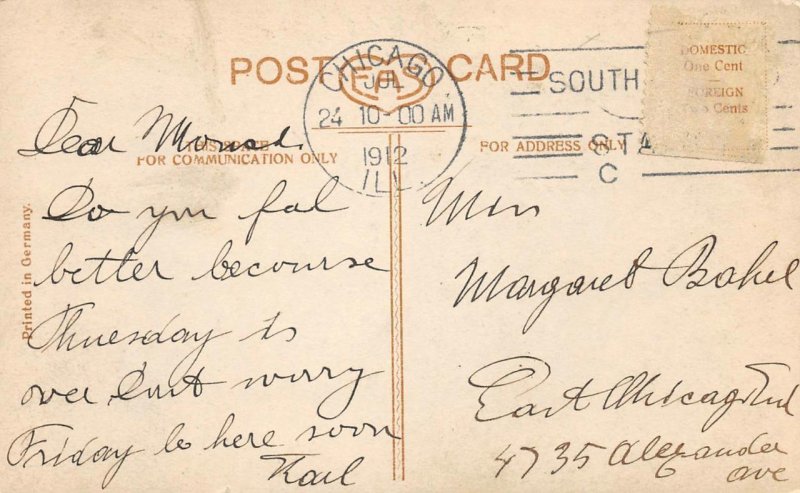 POST CARD
CHICAGO,
JUL
24 10-00 AM
1912
ILL
SOUTH
STA
C
DOMESTIC
One Cent
FOREIGN
Two Cents
THIS SPACE
FOR COMMUNICATION ONLY
FOR ADDRESS ONLY
Printed in Germany.
Dear
Do you fal
better becourse
Thuesday is
over Dont worry
Friday be here soon
Karl
Miss
Margaret Bahel
East Chicago Ind
4735 Alexander
ave